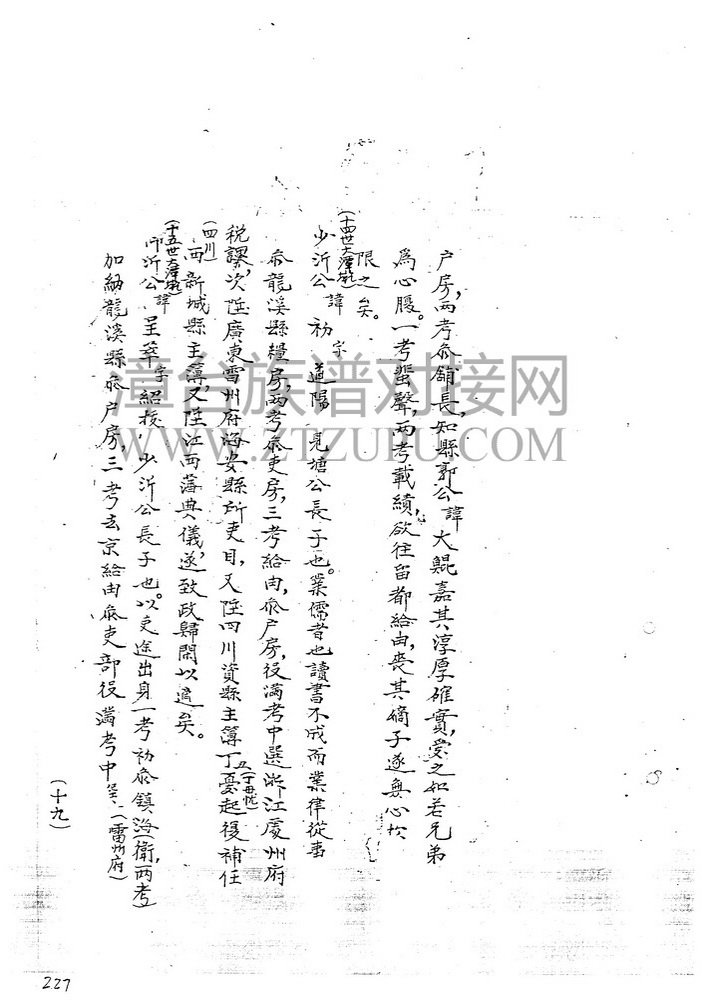 户房,两考叅舖長,知縣郭公諱大鯤嘉其淳厚確實,愛之如若兄弟
爲心腹。一考蜚聲,两考載績,欲往留都給由,喪其嫡子遂無心於
限之矣。
(十四世大潭)
少沂公諱初字道陽 見塘公長子也。業儒昔也讀書不成而業律從事
叅龍溪縣糧房,两考叅吏房,三考給由,叅户房,役满考中選浙江處州府
税課,次陞廣東雷州府海安縣所吏目,又陞四川資縣主簿丁憂起復補任
(四川)
西新城縣主簿,又陞江西藩典儀,遂致政歸閑以適矣。
(十五世大潭)
沂公諱呈萃字紹撥,少沂公長子也。以吏途出身一考初叅鎮海(衛,两考)
加納龍溪縣叅户房,三考去京給由叅吏部役滿考中(雷州府)
(十九)
227
漳台族谱对接网
WWW.ZTZUPU.COM